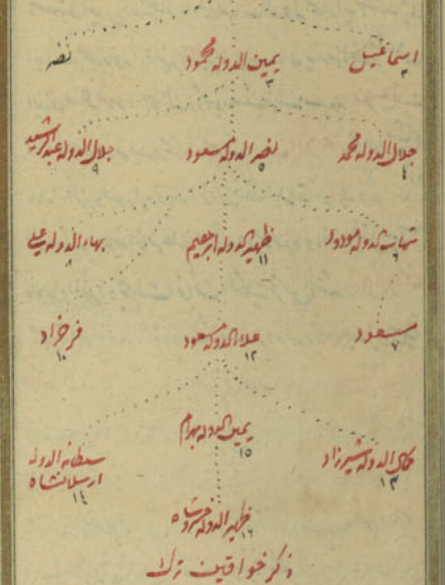 اسماعیل یمین الدوله محمود نصر
۲ ۳
جلال الدوله محمد نصر الدوله مسعود جلال الدوله عبدالرشید
۴ ۵ ۹
شهاب الدوله مودود ظهیر الدوله ابرهیم بهاء الدوله علی
۶ ۱۱ ۸
مسعود علاء الدوله مسعود فرخزاد
۷ ۱۲ ۱۰
کمال الدوله شیرزاد یمین الدوله بهرام سلطان الدوله ارسلانشاه
۱۳ ۱۵ ۱۴
ظهیر الدوله خسروشاه
۱۶
ذکر خواقین ترک